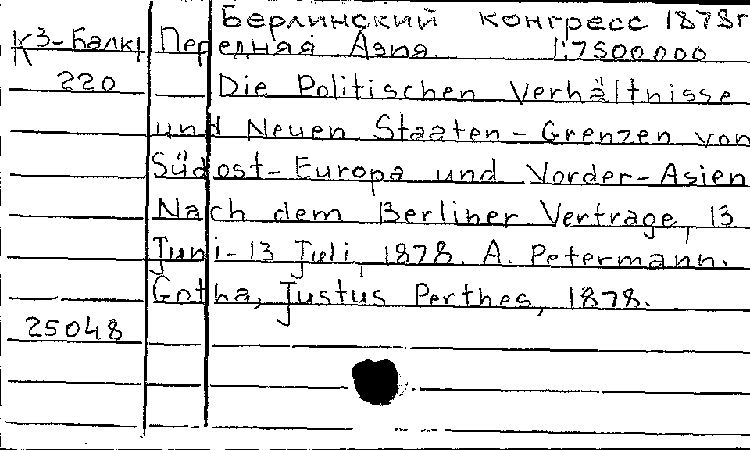 Берлинский конгресс 1878г
К3-Балк Передняя Азия 1:7500000
220 Die Politischen Verhältnisse
und Neuen Staaten-Grenzen von
Südost-Europa und Vorder-Asien
Nach dem Berliner Vertrage, 13
Juni-13 Juli, 1878. A. Petermann.
Gotha, Justus Perthes, 1878.
25048